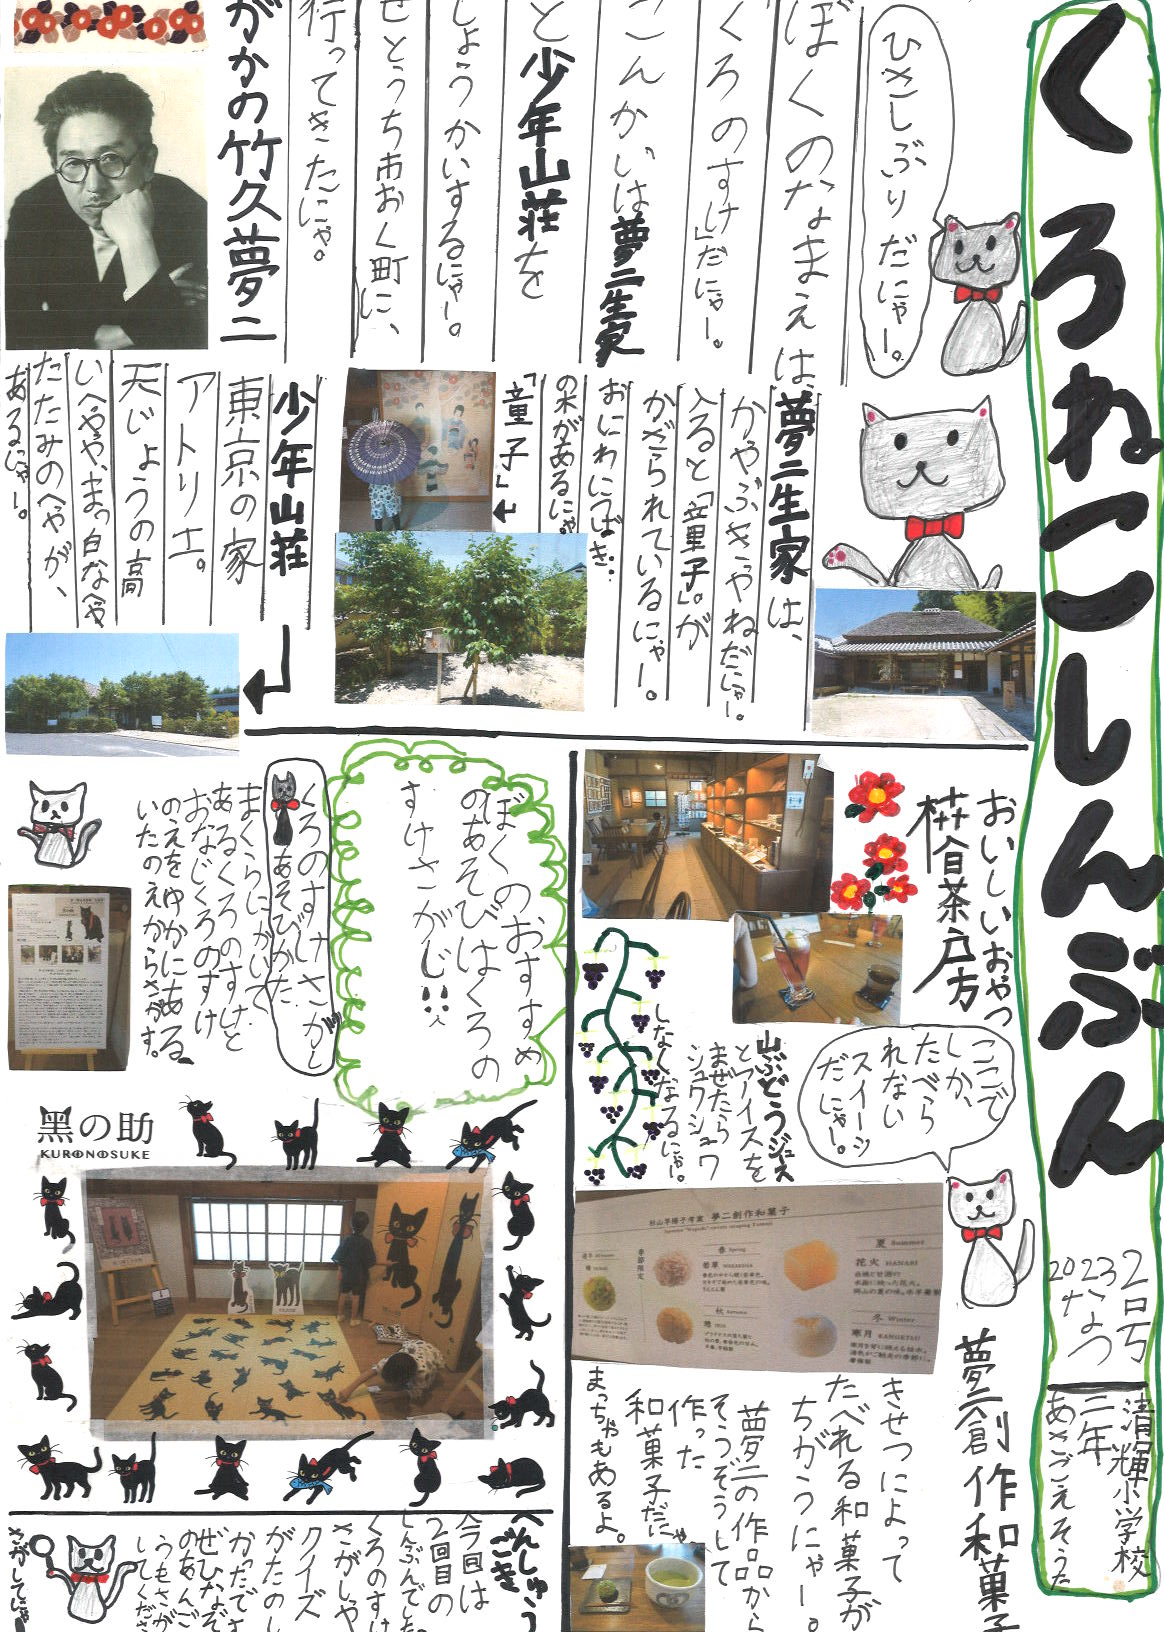 くろねこしんぶん
2023 2号
なつ
清輝小学校
二年
あさごえそうた
ひさしぶりだにゃー。
ぼくのなまえは、
くろのすけ」だにゃー。
こんかいは夢二生家
と少年山荘を
しょうかいするにゃー。
せとうち市おく町に、
行ってきたにゃ。
がかの竹久夢二
夢二生家は、
かやぶきやねだにゃー。
入ると「童子」が
かざられているにゃー。
おにわにつばき
の木があるにゃ。
「童子」
少年山荘
東京の家
アトリエ。
天じょうの高
いへやや、まっ白なへや
たたみのへやが、
あるにゃー。
おいしいおやつ
椿茶房
ここで
しか、
たべら
れない
スイーツ
だにゃー。
山ぶどうジュース
とアイスを
まぜたら
シュワシュワ
しなくなるにゃー。
杉山早陽子考案 夢二創作和菓子
季節限定
春 Spring
若草 WAKAKUSA
夏 Summer
花火 HANABI
秋 Autumn
冬 Winter
寒月 KANGETSU
夢二創作和菓子
きせつによって
たべれる和菓子が
ちがうにゃー。
夢二の作品から
そうぞうして
作った
和菓子だにゃ
まっちゃもあるよ。
ぼくのおすすめ
のあそびはくろの
すけさがし
くろのすけさがし
あそびかた
まくらにかいて
あるくろのすけと
おなじくろのすけ
のえをゆかにある
いたのえからさがす。
黑の助
KURONOSUKE
へんしゅう
ごき
今回は
2回目の
しんぶんでした
くろのすけ
さがしや
クイズ
がたのし
かったです
ぜひみなぞ
のあんご
うもさが
してくださ
さがしてにゃー